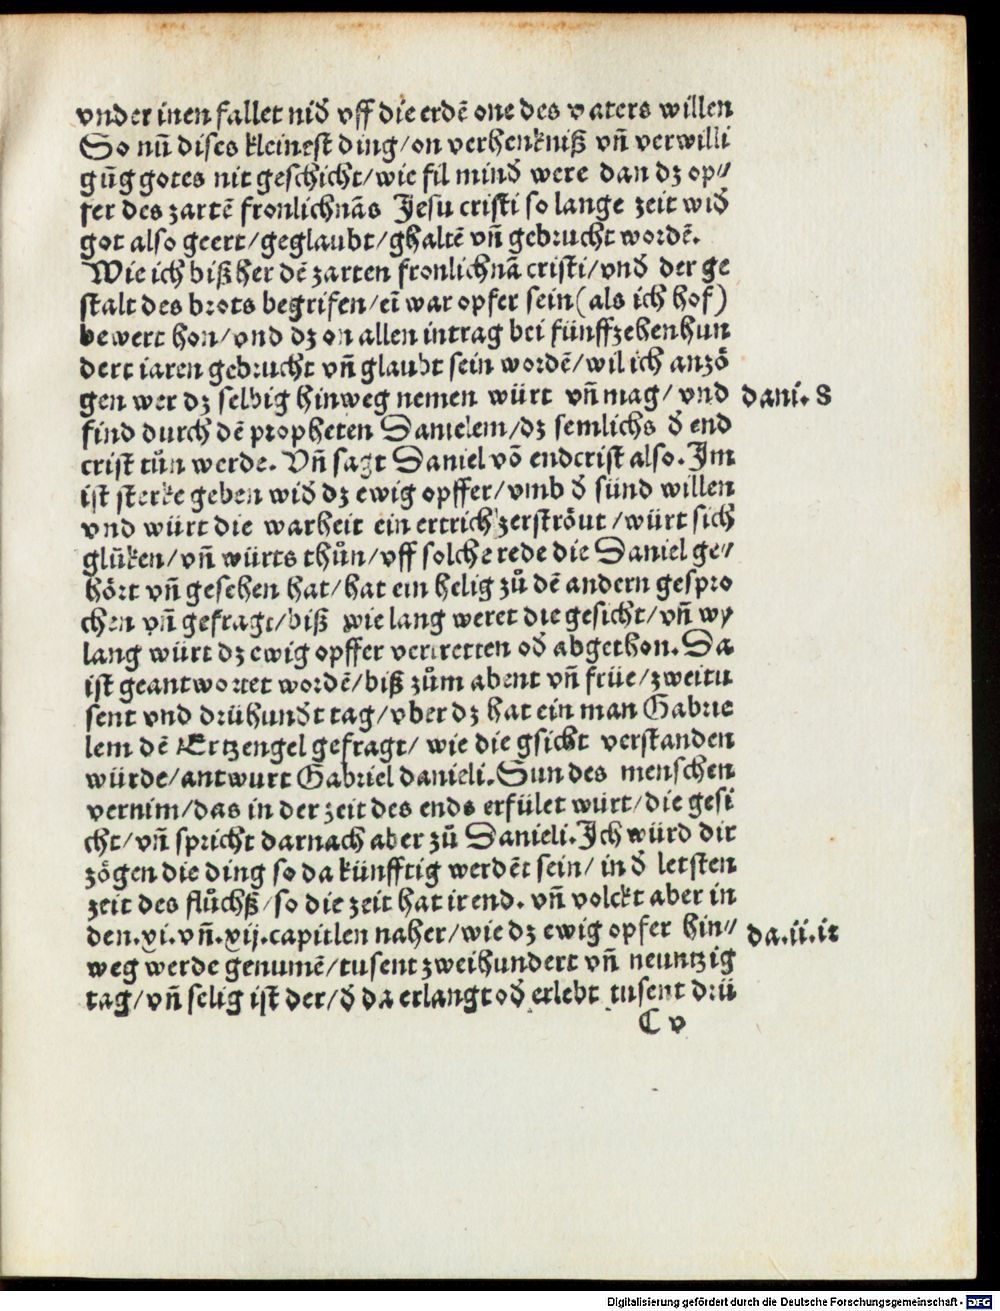 vnder inen fallet nid̕ vff die erdē one des vaters willen
So nū dises kleinest ding/on verhenkniß vñ verwilli
gūg gotes nit geschicht/wie fil mind̕ were dan dz op⸗
fer des zartē fronlichnās Jesu cristi so lange zeit wid̕
got also geert/geglaubt/ghaltē vñ gebrucht wordē.
Wie ich bißher dē zarten fronlichnā cristi/vnd̕ der ge
stalt des brots begrifen/eī war opfer sein(als ich hof)
bewert hon/vnd dz on allen intrag bei fünffzehenhun
dert iaren gebrucht vñ glaubt sein wordē/wil ich anzö
gen wer dz selbig hinweg nemen würt vñ mag/vnd
dani. 8
find durch dē propheten Danielem/dz semlichs d̕ end
crist tůn werde. Vñ sagt Daniel vō endcrist also. Im
ist sterke geben wid̕ dz ewig opffer/vmb d̕ sünd willen
vnd würt die warheit ein ertrich zerströut/würt sich
glüken/vñ würts thůn/vff solche rede die Daniel ge⸗
hört vñ gesehen hat/hat ein helig zů dē andern gespro
chen vñ gefragt/biß wie lang weret die gesicht/vñ wy
lang würt dz ewig opffer vertretten od̕ abgethon. Da
ist geantwortet wordē/biß zům abent vñ früe/zweitu
sent vnd drühund̕t tag/vber dz hat ein man Gabrie
lem dē Ertzengel gefragt/wie die gsicht verstanden
würde/antwurt Gabriel danieli. Sun des menschen
vernim/das in der zeit des ends erfület würt/die gesi
cht/vñ spricht darnach aber zů Danieli. Ich würd dir
zögen die ding so da künfftig werdēt sein/in d̕ letsten
zeit des flůchß/so die zeit hat ir end. vñ volckt aber in
den.xi.vñ.xij.capitlen naher/wie dz ewig opfer hin⸗
da.ii.it
weg werde genumē/tusent zweihundert vñ neuntzig
tag/vñ selig ist der/d̕ da erlangt od̕ erlebt tusent drü
C v
Digitalisierung gefördert durch die Deutsche Forschungsgemeinschaft - DFG